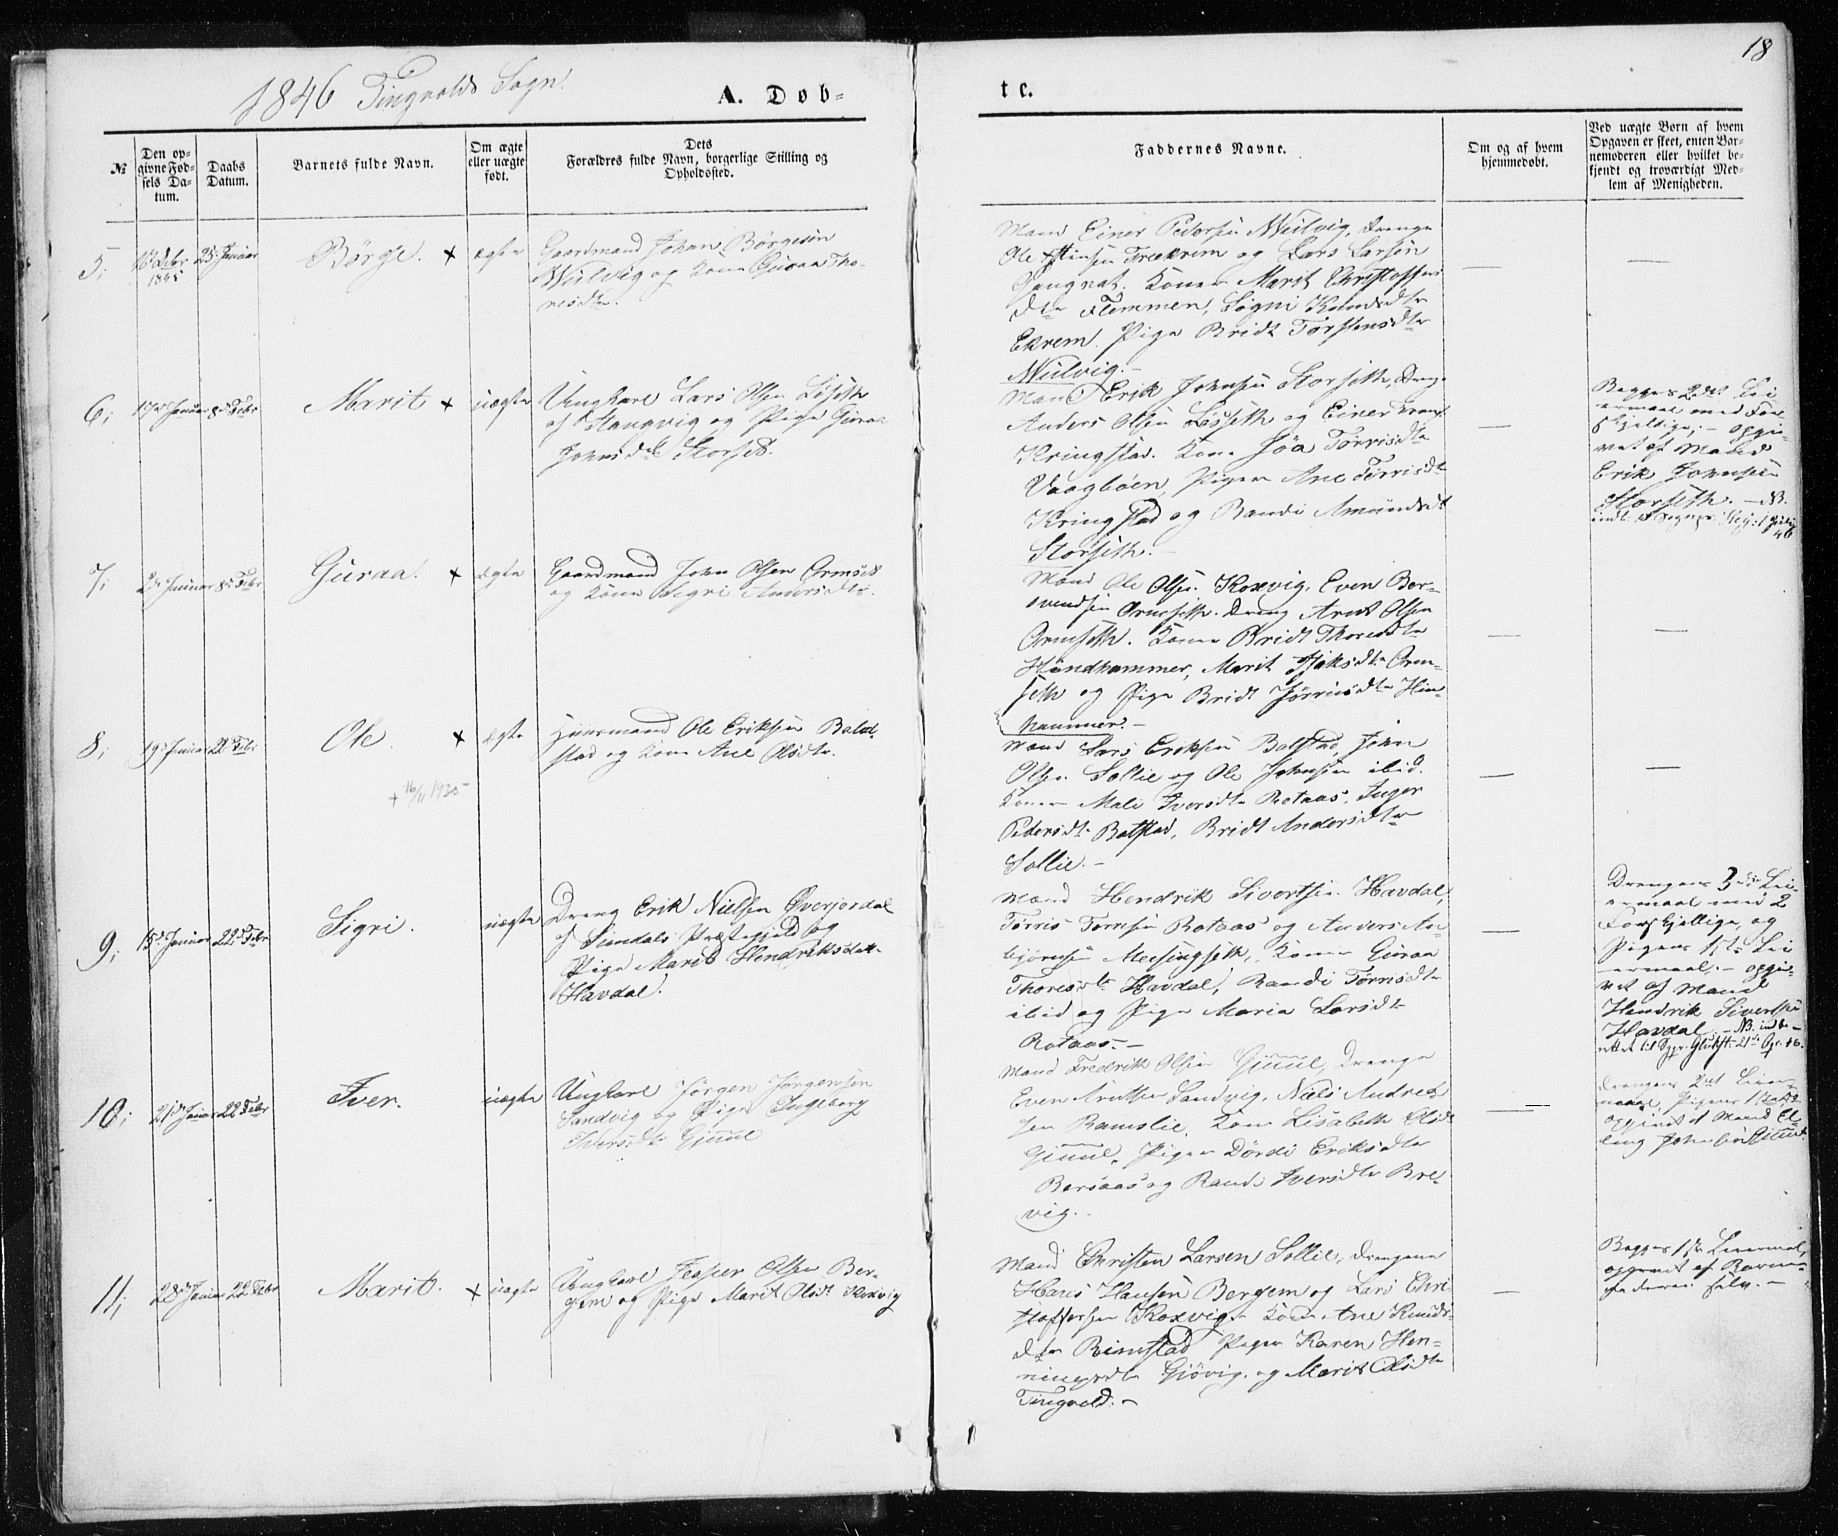 18
1846 Tingvolds Sogn.
A. Døb-
te.
№
Den op-
givne Fød-
sels Da-
tum.
Daabs
Datum.
Barnets fulde Navn.
Om ægte
eller uægte
født.
Dets
Forældres fulde Navn, borgerlige Stilling og
Opholdssted.
Faddernes Navne.
Om og af hvem
hjemmedøbt.
Ved uægte Børn af hvem
Opgaven er skeet, enten Bar-
nemoderen eller hvilket be-
kjendt og troværdigt Med-
lem af Menigheden.
5,
1845
25 Januar
Børge. +
ægte
Gaardmand Johan Børgesøn
Wulvig og Kone Guraa Tho-
resdtr.
Mand Einer Pedersen Wulvig, Drenge
Ole Frækrem og Lars Larsøn
Kone Marit Christoffers
dtr Flemmen, Signi Knudsdtr
Ekrem. Pige Bridt Torstensdtr
Wulvig. -
—
—
6,
17de Januar
8de Febr
Marit +
uægte
Ungkarl Lars Olsen Løseth
af Stangvig og Pige Guraa
Johnsdtr Storset.
Mand Erik Johnsen Storseth, Dreng
Anders Olsen Løsseth og Einer
Kringstad. Kone Siøa Tørrisdtr
Vaagbøen, Piger Ane Tørrisdtr
Kringstad og Randi Amundsdtr
Storseth. -
—
Begges 2det Lei-
ermaal med For-
skjellige; - opgi-
vet af Mand
Erik Johnsen
Storseth. - NB.
7,
2de Januar
8de Febr
Guraa. +
ægte
Gaardmand John Olsen Ormset
og Kone Sigri Andersdtr.
Mand Ole Olsen Koxvig, Even Bor-
svendsen Ormseth. Dreng Arnt Olsen
Ormseth. Kone Bridt Thoresdtr
Hündhammer, Marit Isaksdtr Orm-
seth og Pige Bridt Tørrisdtr Hün-
hammer. -
—
—
8,
19de Januar
22de Febr
Ole. +
+ 16/11 1930
ægte
Huusmand Ole Eriksen Bals-
stad og Kone Ane Olsdtr.
Mand Lars Eriksen Balstad, John
Olsen Sollie og Ole Johnsen ibid.
Koner Mali Iversdtr Rotaas, Inger
Pedersdtr Balstad, Bridt Andersdtr
Sollie. -
—
—
9,
15de Januar
22de Febr
Sigri.
uægte
Dreng Erik Nielsen Øverjordal
af Sundals Præstegjeld og
Pige Marit Hendriksdatr
Havdal.
Mand Hendrik Sivertsen Havdal,
Tørris Tørrisen Rotaas og Anders An-
bjørnsen Meisingseth, Kone Guraa
Thoresdtr Havdal, Randi Tørrisdtr
ibid og Pige Maria Larsdtr
Rotaas. -
—
Drengens 3die Lei-
ermaal med 2
Forskjellige, og
Pigens 1ste Lei-
ermaal. - opgi-
vet af Mand
Hendrik Sivertsen
Havdal. - NB. indbe-
10,
21de Januar
22 Febr
Iver.
uægte
Ungkarl Jørgen Jørgensen
Sandvig og Pige Ingeborg
Iversdtr Gjuul
Mand Fredrik Olsen Gjuul, Drenge
Even Arntsen Sandvig, Niels Andrea-
sen Ramslie, Kone Lisabeth Olsdtr
Gjuul, Piger Dordi Eriksdtr
Borsaas og Randi Iversdtr Bre-
vig.
—
Drengens 2det Leier-
maal, Pigens 1ste
opgivet af Mand El-
ling Johnsen Gjuul.
11,
22de Januar
22 Febr
Marit. +
uægte
Ungkarl Jesper Olsen Ber-
gem og Pige Marit Olsdtr Koxvig
Mand Christen Larsen Sollie, Drengene
Hans Hansen Bergem og Lars Chri-
stoffersen Koxvig. Kone Ane Knuds-
dtr Rimstad Piger Karen Hen-
ningsdtr Gjøvig, og Marit Olsdtr
Tingvold. -
—
Begges 1ste Leiermaal,
opgivet af Barne-
moderen selv. -